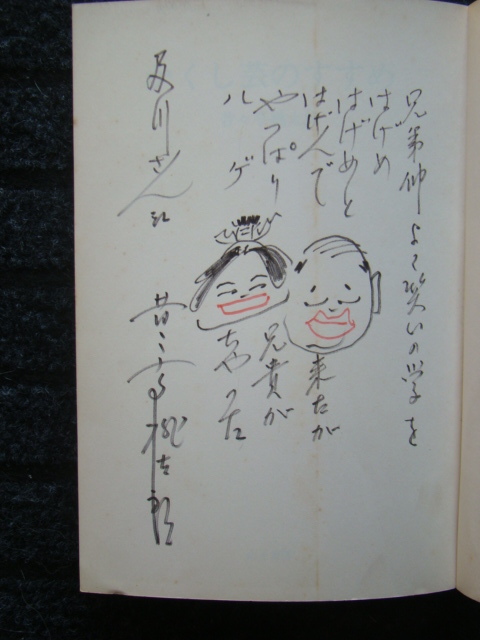 兄弟仲よく笑いの学を
はげめ
はげめと
はげんで来たが
やっぱり兄貴が
ハゲちゃった
及川さん江
昔々亭桃太郎